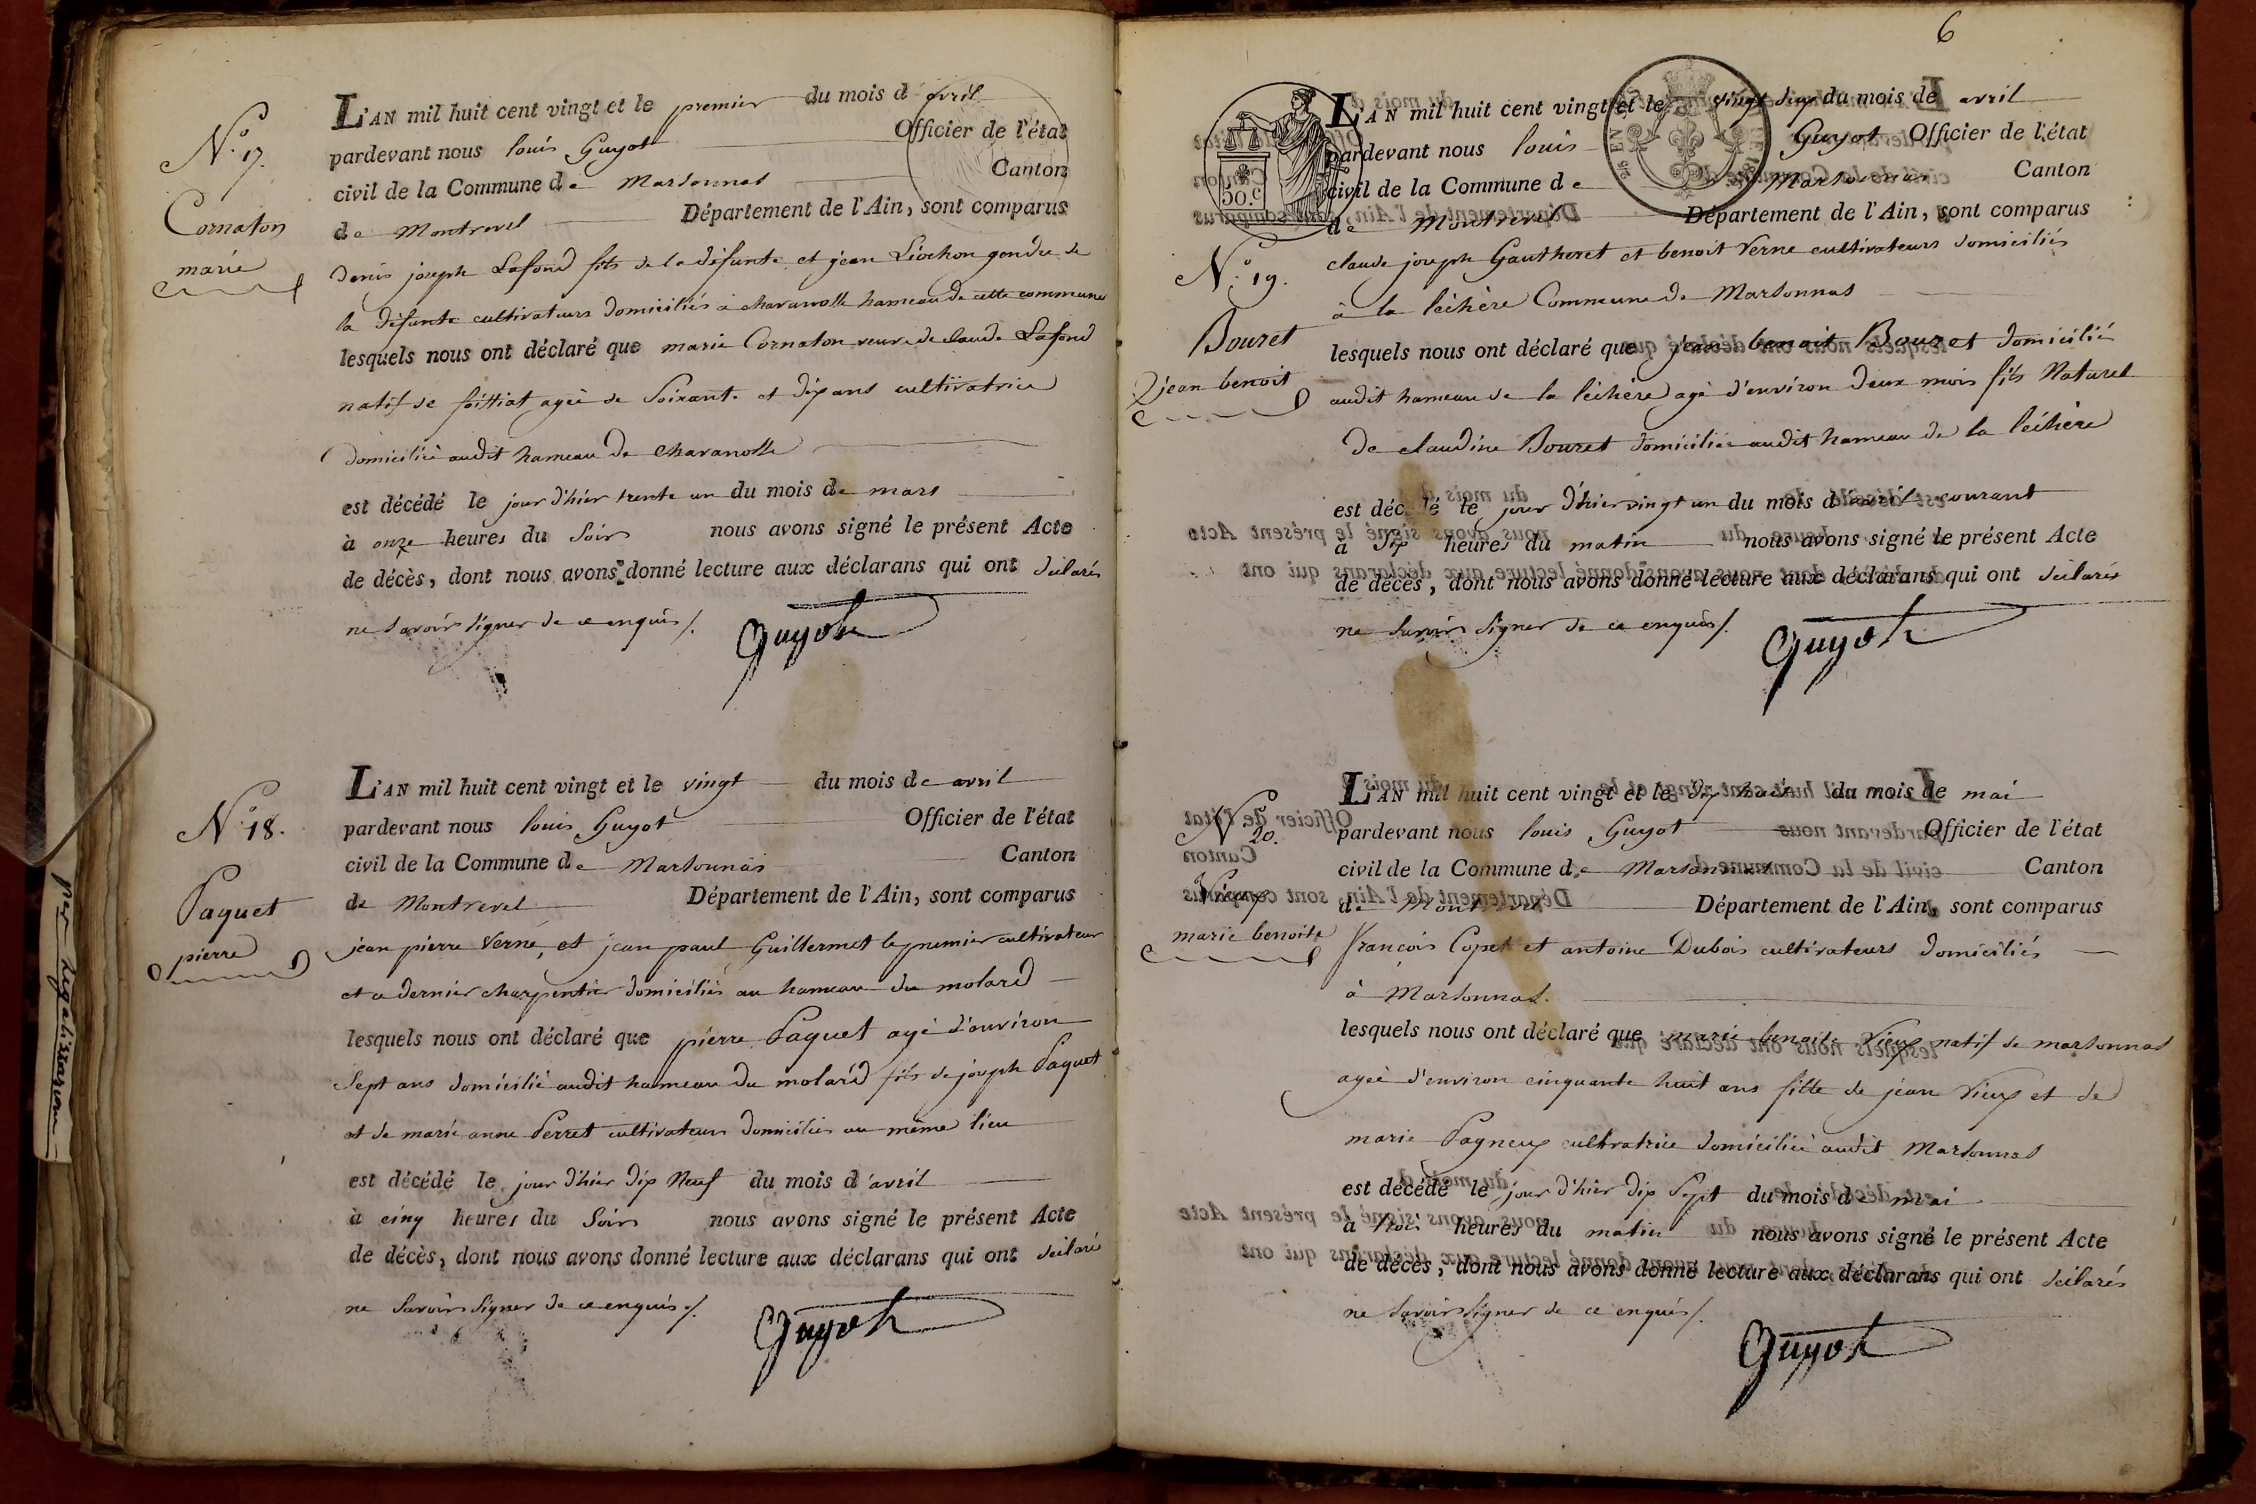 N.o 17.
Cornaton
marie
L'AN mil huit cent vingt et le premier du mois d avril
pardevant nous louis Guyot Officier de l'état
civil de la Commune de Marsonnas Canton
de Montrevel Département de l'Ain, sont comparus
denis joseph Lafond fils de la défunte et jean Liochon gendre de
la défunte cultivateurs domiciliés à charanolle hameau de cette commune
lesquels nous ont déclaré que marie Cornaton veuve de claude Lafond
natif de foittiat agée de Soixante et dix ans cultivatrice
domiciliée audit hameau de charanolle
est décédé le jour d'hier trente un du mois de mars
à onze heures du Soir nous avons signé le présent Acte
de décès, dont nous avons donné lecture aux déclarans qui ont déclarés
ne Savoir Signer de ce enquis/.
Guyot
N.o 18.
Paquet
pierre
L'AN mil huit cent vingt et le vingt du mois de avril
pardevant nous louis Guyot Officier de l'état
civil de la Commune de Marsonnas Canton
de Montrevel Département de l'Ain, sont comparus
jean pierre Verne, et jean paul Guillermet le premier cultivateur
et ce dernier charpentier domiciliés au hameau du molard
lesquels nous ont déclaré que pierre Paquet agé d'environ
Sept ans domicilié audit hameau du molard fils de joseph Paquet
et de marie anne Perret cultivateurs domiciliés au même lieu
est décédé le jour d'hier dix Neuf du mois d'avril
à cinq heures du Soir nous avons signé le présent Acte
de décès, dont nous avons donné lecture aux déclarans qui ont déclaré
ne Savoir Signer de ce enquis/.
Guyot
6
30.C
N.o 19.
Bouret
jean benoit
L'AN mil huit cent vingt et le vingt deux du mois de avril
pardevant nous louis Guyot Officier de l'état
civil de la Commune de Marsonnas Canton
de Montrevel Département de l'Ain, sont comparus
claude joseph Gautheret et benoit Verne cultivateurs domiciliés
à la léchère Commune de Marsonnas
lesquels nous ont déclaré que jean benoit Bouret domicilié
audit hameau de la léchère agé d'environ deux mois fils Naturel
de claudine Bouret domiciliée audit hameau de la léchère
est décédé le jour d'hier vingt un du mois d'avril courant
à Six heures du matin nous avons signé le présent Acte
de décès, dont nous avons donné lecture aux déclarans qui ont déclarés
ne Savoir Signer de ce enquis/.
Guyot
N.o 20.
Vieux
marie benoite
L'AN mil huit cent vingt et le dix huit du mois de mai
pardevant nous louis Guyot Officier de l'état
civil de la Commune de Marsonnas Canton
de Montrevel Département de l'Ain, sont comparus
françois Copet et antoine Dubois cultivateurs domiciliés
à Marsonnas.
lesquels nous ont déclaré que marie benoite Vieux natif de marsonnas
agée d'environ cinquante huit ans fille de jean Vieux et de
marie Pagneux cultivatrice domiciliée audit Marsonnas
est décédé le jour d'hier dix Sept du mois de mai
à trois heures du matin nous avons signé le présent Acte
de décès, dont nous avons donné lecture aux déclarans qui ont déclarés
ne Savoir Signer de ce enquis/.
Guyot